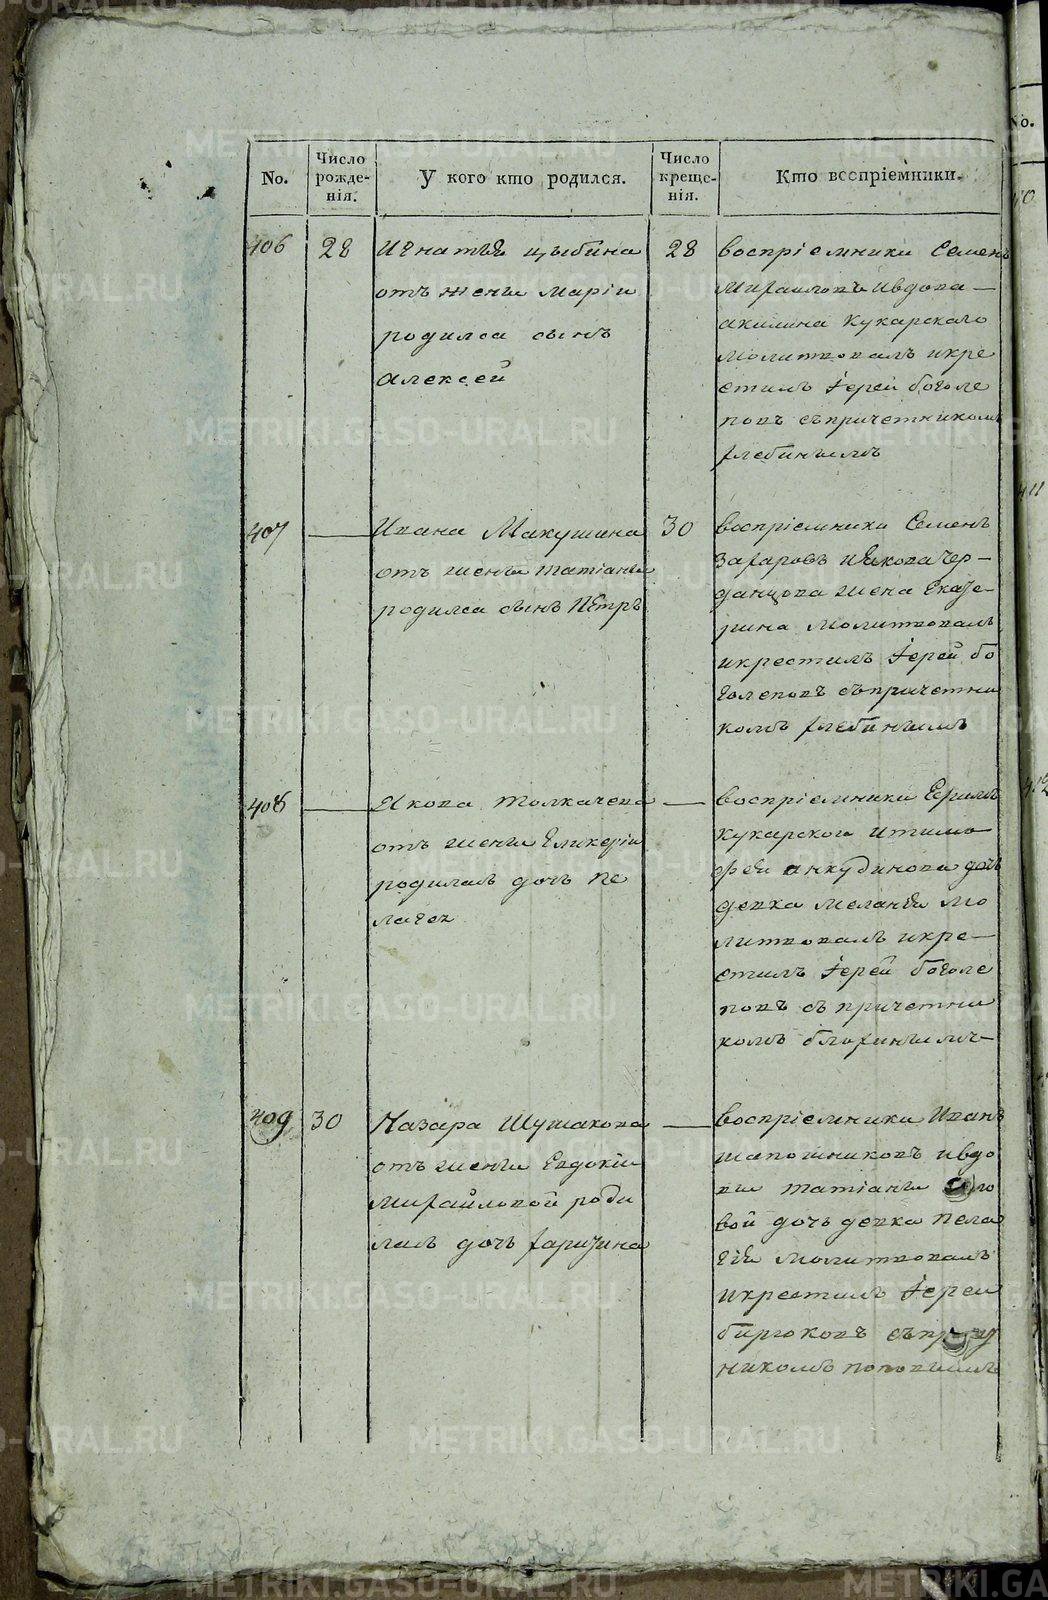 No.
Число рожде-нія.
У кого кто родился.
Число креще-нія.
Кто воспріемники.
406
28
Игнатья Цыбина
отъ жены Маріи
родился сынъ
Алексей
28
воспріемники Семенъ
Михаиловъ ивдова
акилина кукарскаго
молитвовалъ икре
стилъ Іерей боголе
повъ съпричетникомъ
хлебинымъ
407
Ивана Макушина
отъ жены татіаны
родился сынъ Петръ
30
воспріемники Семенъ
Захаровъ иякова чер-
данцова жена Екате-
рина молитвовалъ
икрестилъ Іерей бо
голеповъ съпричетни
комъ хлебинымъ
408
Якова толкачева
отъ жены Гликеріи
родилась дочь пе
лагея
воспріемники Ефимъ
кукарского итимо
фея анкудинова дочь
девка меланья мо
литвовалъ икре-
стилъ Іерей боголе
повъ съ причетни
комъ
409
30
Назара Шушакова
отъ жены Евдокіи
михайловой роди
лась дочь харитина
воспріемники Иванъ
шапошниковъ ивдо
вы татіаны
вой дочь девка пела
гія молитвовалъ
икрестилъ Іереи
бирюковъ
никомъ поповымъ
No.
METRIKI.GASO-URAL.RU